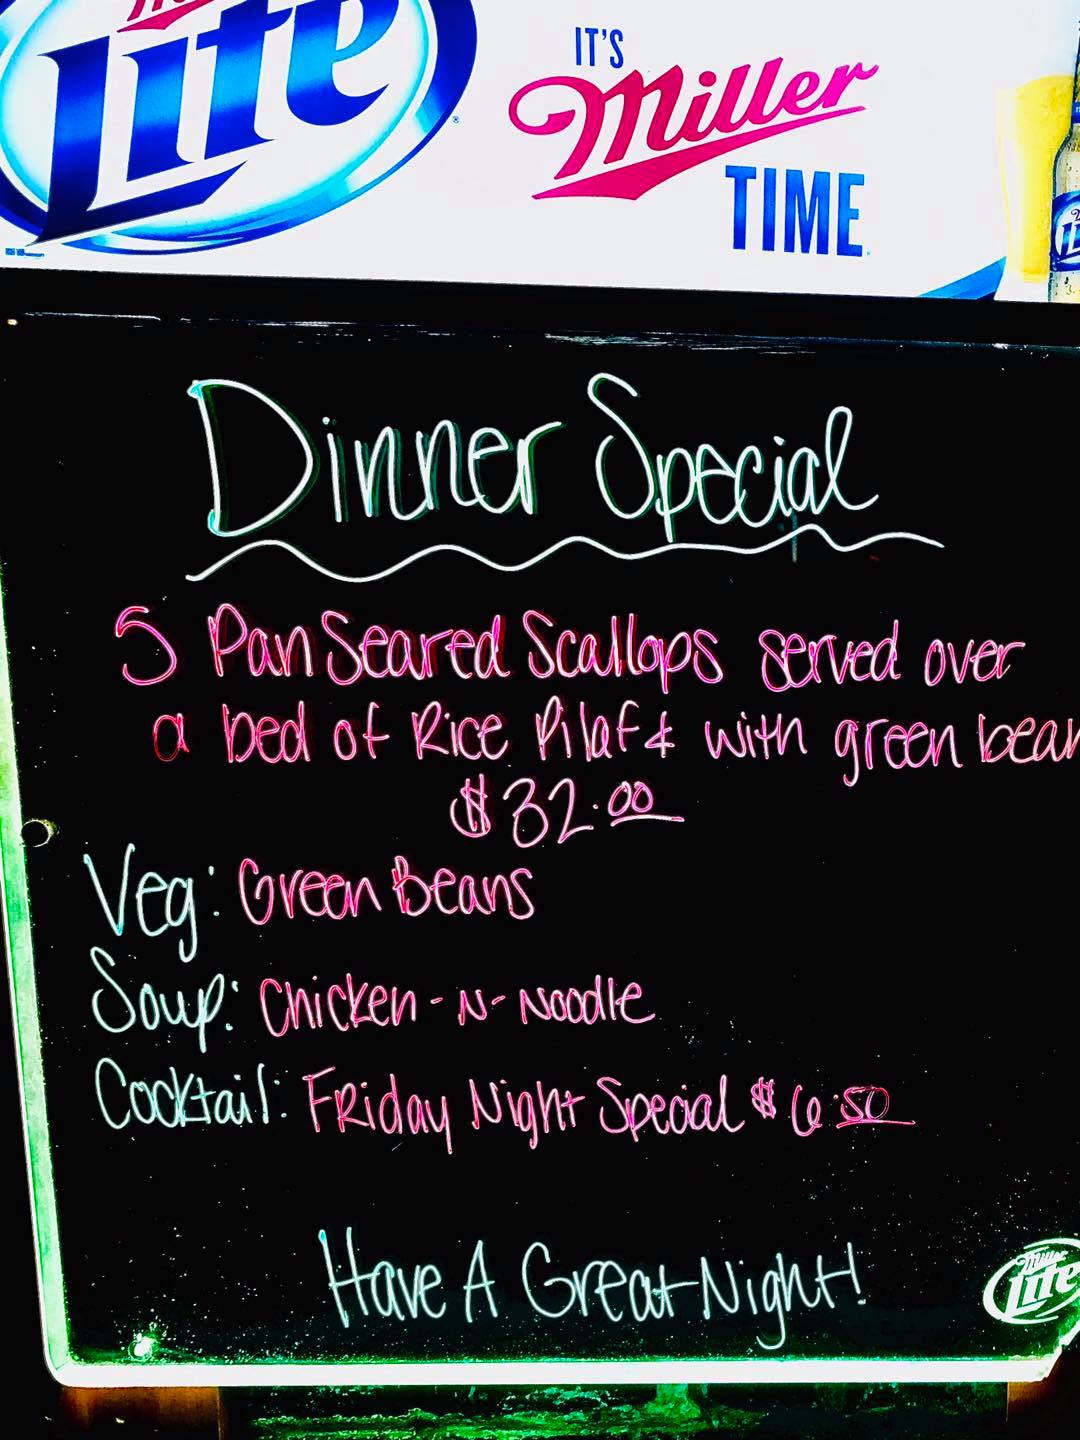 Lite
IT'S
Miller
TIME
Dinner Special
5 Pan Seared Scallops served over
a bed of Rice Pilaf & with green bean
$32.00
Veg: Green Beans
Soup: Chicken-N-Noodle
Cocktail: Friday Night Special $6.50
Have A Great Night!
Miller
Lite